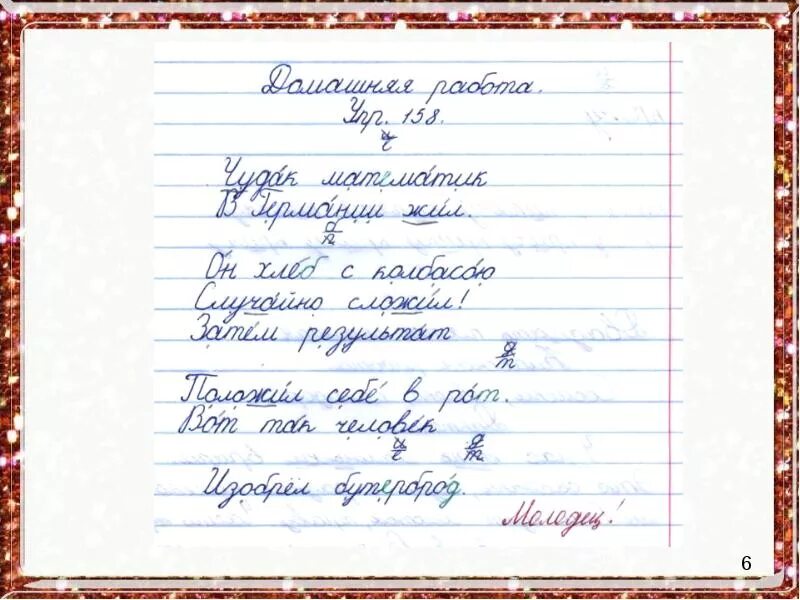 Домашняя работа.
Упр. 158.
и
е
Чуда́к матема́тик
В Герма́нии жил.
б
п
Он хлеб с колбасо́ю
Случа́йно сложи́л!
Зате́м результа́т
д
т
Положи́л себе́ в рот.
Вот так челове́к
и д
е т
Изобре́л бутербро́д.
Молодец!
6